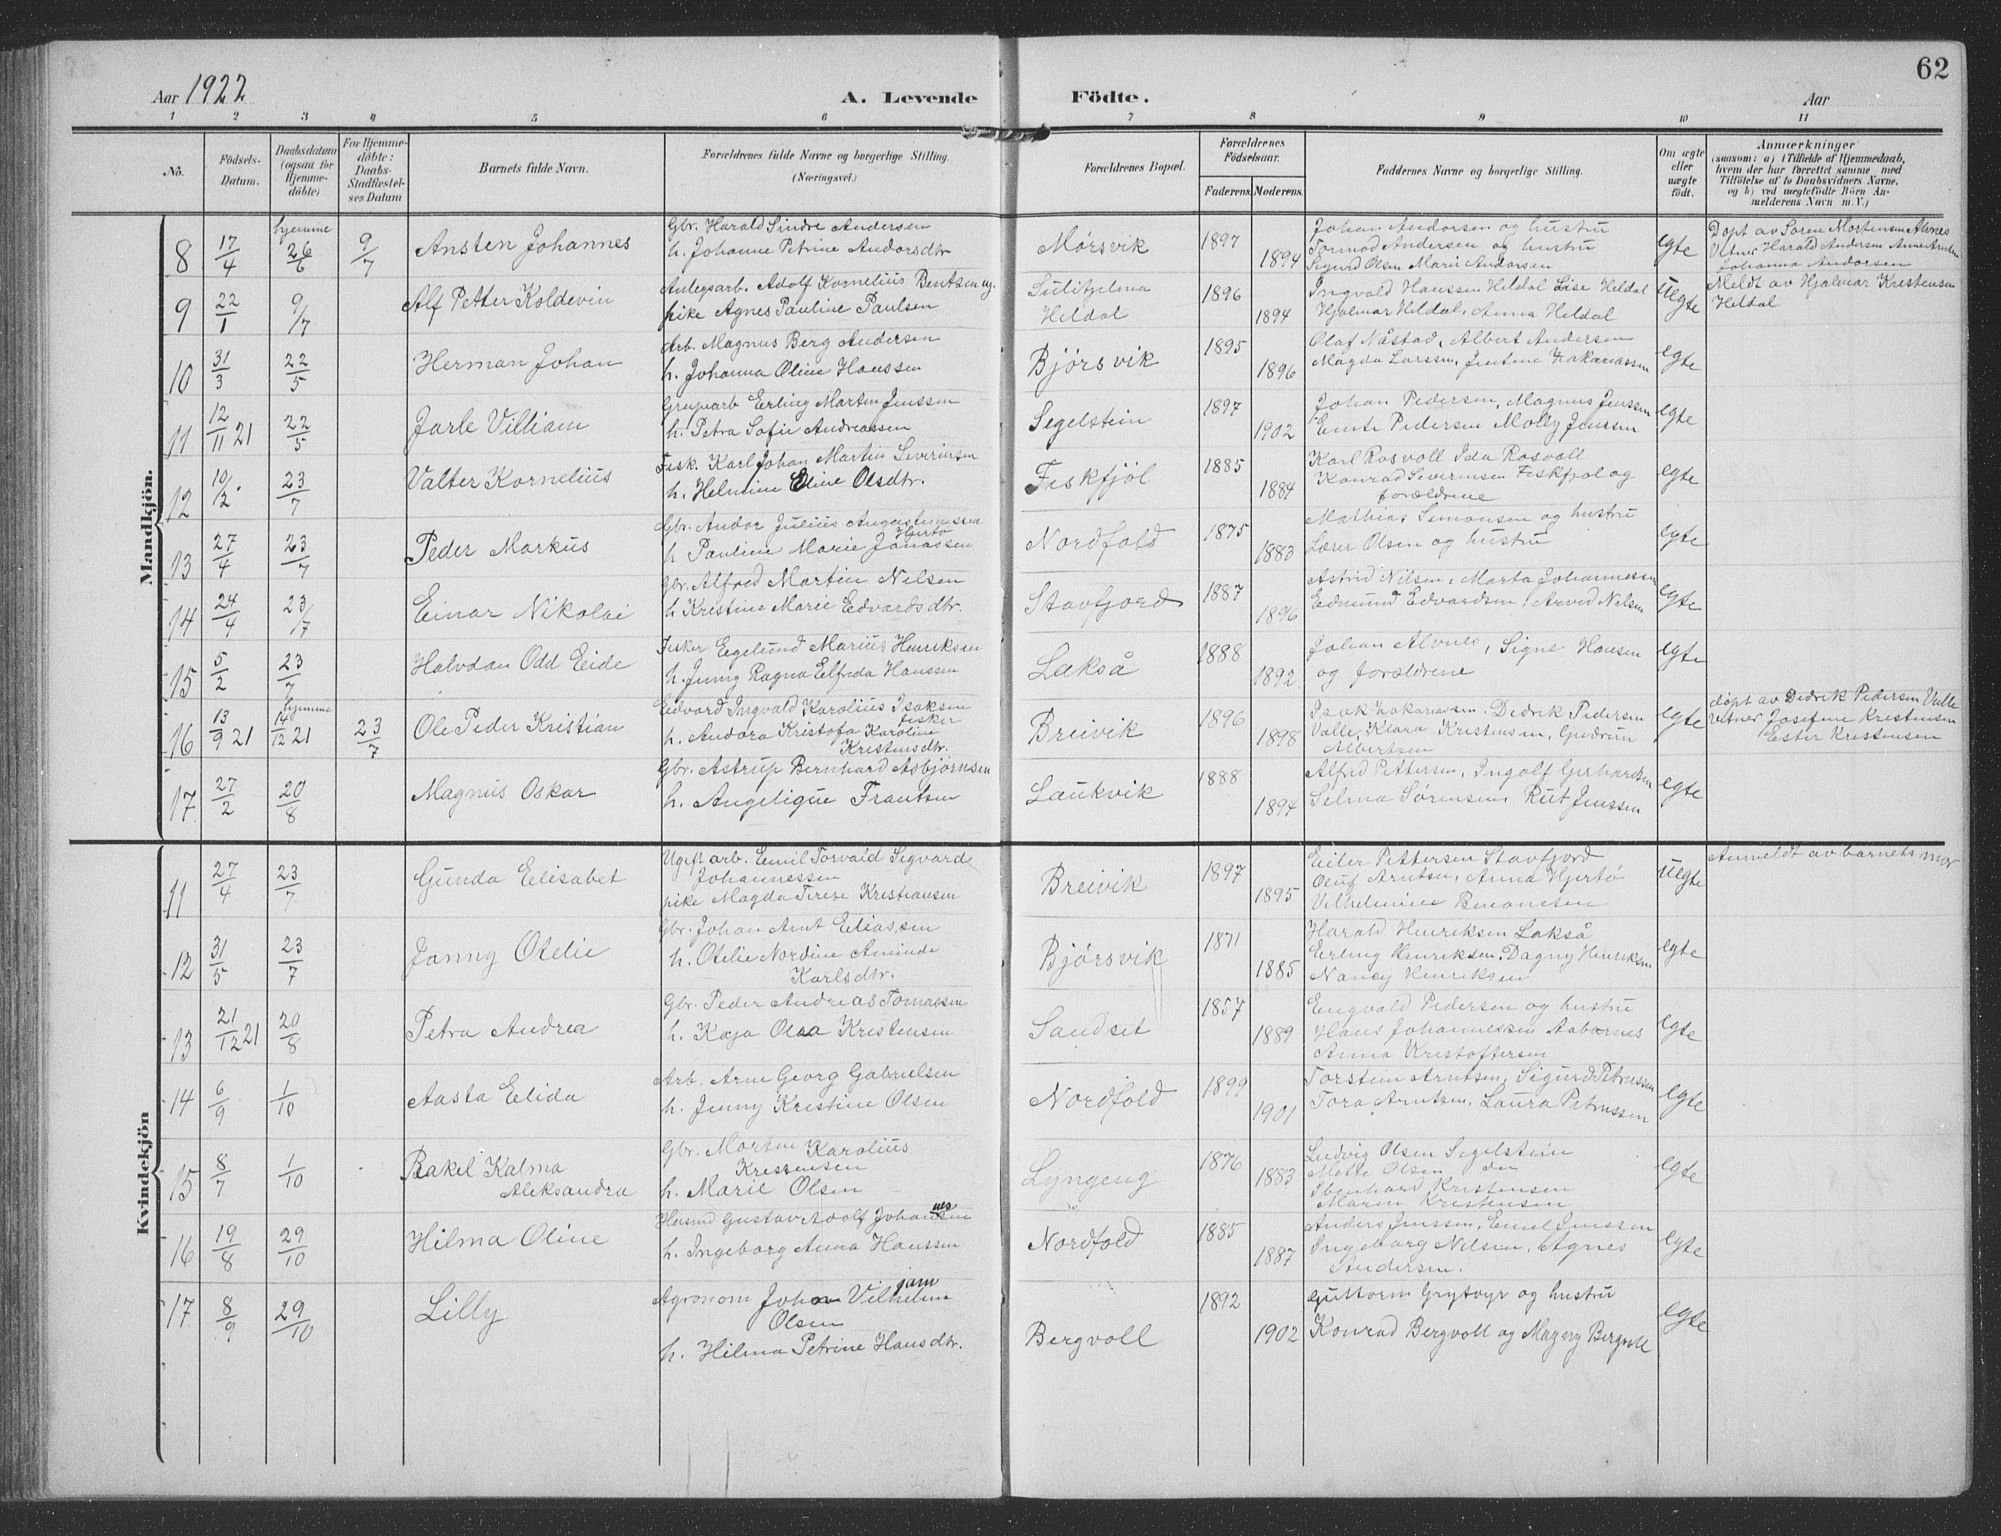 62
Aar 1922 A. Levende Födte. Aar
1 2 3 4 5 6 7 8 9 10 11
No. Födsels-Datum. Daabsdatum (ogsaa for Hjemme-döbte) For Hjemme-döbte: Daabs-Stadfæstel-ses Datum Barnets fulde Navn. Forældrenes fulde Navne og borgerlige Stilling. (Næringsvei.) Forældrenes Bopæl. Forældrenes Födselsaar. Faderens. Moderens. Faddernes Navne og borgerlige Stilling. Om ægte eller uægte födt. Anmærkninger (saasom: a) i Tilfælde af Hjemmedaab, hvem der har forrettet samme, med Tilföielse af to Daabsvidners Navne, og b) ved uægtefödte Börn An-melderens Navn m. V.)
Mandkjön.
8 17/4 hjemme 26/6 9/7 Ansten Johannes Gbr. Harald Sindre Andersen
h. Johanne Petrine Andorsdtr Mørsvik 1897 1894 Johan Andorsen og hustru
Tormod Andersen og hustru
Sigurd Olsen Marie Andorsen egte Døpt av Søren Mortensen Alvnes
Vitner Harald Andersen
Johanna Andorsen
9 22/1 9/7 Alf Petter Koldevin Anlegsarb. Adolf Kornelius Bentsen ug.
pike Agnes Pauline Paulsen Sulitjelma
Heldal 1896 1894 Ingvald Hanssen Heldal Lise Heldal
Hjalmar Heldal, Anna Heldal uegte Meldt av Hjalmar Kristensen
Heldal
10 31/3 22/5 Herman Johan Arb. Magnus Berg Andersen
h. Johanna Oline Hanssen Bjørsvik 1895 1896 Olaf Nåstad, Albert Andersen
Magda Larssen, Jentine Zakariassen egte
11 12/11 21 22/5 Jarle Villiam Grubearb Erling Martin Jenssen
h. Petra Sofie Andreassen Segelstein 1897 1902 Johan Pedersen, Magnus Jenssen
Pedersen Molly Jenssen egte
12 10/2 23/7 Valter Kornelius Fisk. Karl Johan Martin Severinsen
h. Helmine Eline Olsdtr. Fiskfjøl 1885 1884 Karl Rosvoll Ida Rosvoll
Konrad Severinsen Fiskfjol og
forældrene egte
13 27/4 23/7 Peder Markus Gbr. Andor Julius Augustinussen
Hjertø
h Pauline Marie Jonassen Nordfold 1875 1883 Mathias Simonsen og hustru
Lærer Olsen og hustru egte
14 24/4 23/7 Einar Nikolai Gbr. Alfred Martin Nilsen
h Kristine Marie Edvardsdtr. Stavfjord 1887 1896 Astrid Nilsen, Marta Johannessen
Edmund Edvardsen, Arvid Nilsen egte
15 5/2 23/7 Halvdan Odd Eide Fisker Egelund Marius Henriksen
h. Jenny Ragna Elfrida Hanssen Lakså 1888 1892 Johan Alvnes, Signe Hansen
og forældrene egte
16 13/9 21 hjemme 14/12 21 23/7 Ole Peder Kristian Edvard Ingvald Karolius Isaksen
fisker
h. Andora Kristofa Karoline
Kristensdtr. Breivik 1896 1898 Isak Zakariassen, Didrik Pedersen
Valle, Klara Kristensen, Gudrun
Albertsen egte døpt av Didrik Pedersen Valle
vitner Josefine Kristensen
Ester Kristensen
17 27/2 20/8 Magnus Oskar Gbr. Astrup Bernhard Asbjørnsen
h. Angelique Frantsen Laukvik 1888 1894 Alfred Pettersen, Ingolf Gerhardsen
Selma Sørensen Rut Jenssen egte
Kvindekjön
11 27/4 23/7 Gunda Elisabet Ugift arb. Emil Torvald Sigvard
Johannessen
pike Magda Terese Kristiansen Breivik 1897 1895 Eiler Pettersen Stavfjord
Oluf Arntsen, Anna Hjertø
Vilhelmine Benonisen uegte Anmeldt av barnets mor
12 31/5 23/7 Jonny Otelie Gbr. Johan Arnt Eliassen
h. Otelie Nordine Aminde
Karlsdtr. Bjørsvik 1871 1885 Harald Henriksen Lakså
Erling Henriksen, Dagny Henriksen
Nancy Henriksen egte
13 21/12 21 20/8 Petra Andrea Gbr. Peder Andreas Tomassen
h. Kaja Olea Kristensen Sandset 1857 1889 Engvald Pedersen og hustru
Hans Johannessen Aabornes
Anna Kristoffersen egte
14 6/9 1/10 Aasta Elida Arb. Arne Georg Gabrielsen
h. Jenny Kristine Olsen Nordfold 1899 1901 Torstein Arntsen, Sigurd Petrussen
Tora Arntsen, Laura Petrussen egte
15 8/7 1/10 Rakel Kalma
Aleksandra Gbr. Morten Karolius
Kristensen
h. Marie Olsen Lyngeng 1876 1883 Ludvig Olsen Segelstein
Mette Olsen do
Ibenhard Kristensen
Maren Kristensen egte
16 19/8 29/10 Hilma Oline Husmd Gustav Adolf Johansen
nes
h. Ingeborg Anna Hanssen Nordfold 1885 1887 Anders Jenssen, Emil Jenssen
Ingeborg Nilsen, Agnes
Andersen. egte
17 8/9 29/10 Lilly Agronom Johan Vilhelm
jam
Olsen
h. Hilma Petrine Hansdtr. Bergvoll 1892 1902 Guttorm Grytøyr og hustru
Konrad Bergvoll og Magny Bergvoll egte